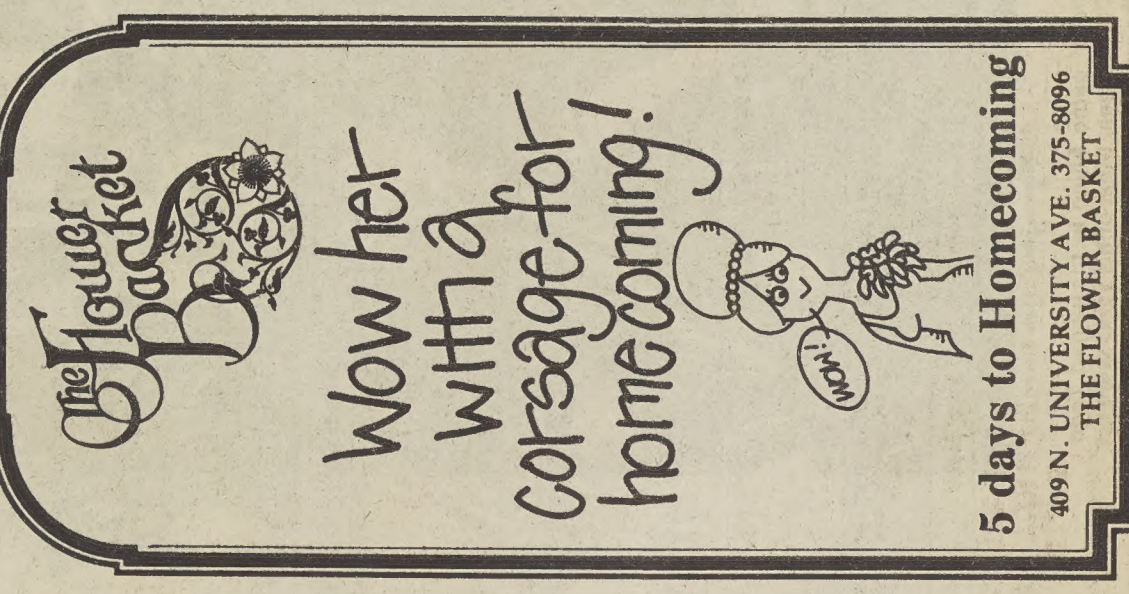 The Flower
Basket
Wow her
with a
corsage for
homecoming!
WOW!
5 days to Homecoming
409 N. UNIVERSITY AVE. 375-8096
THE FLOWER BASKET